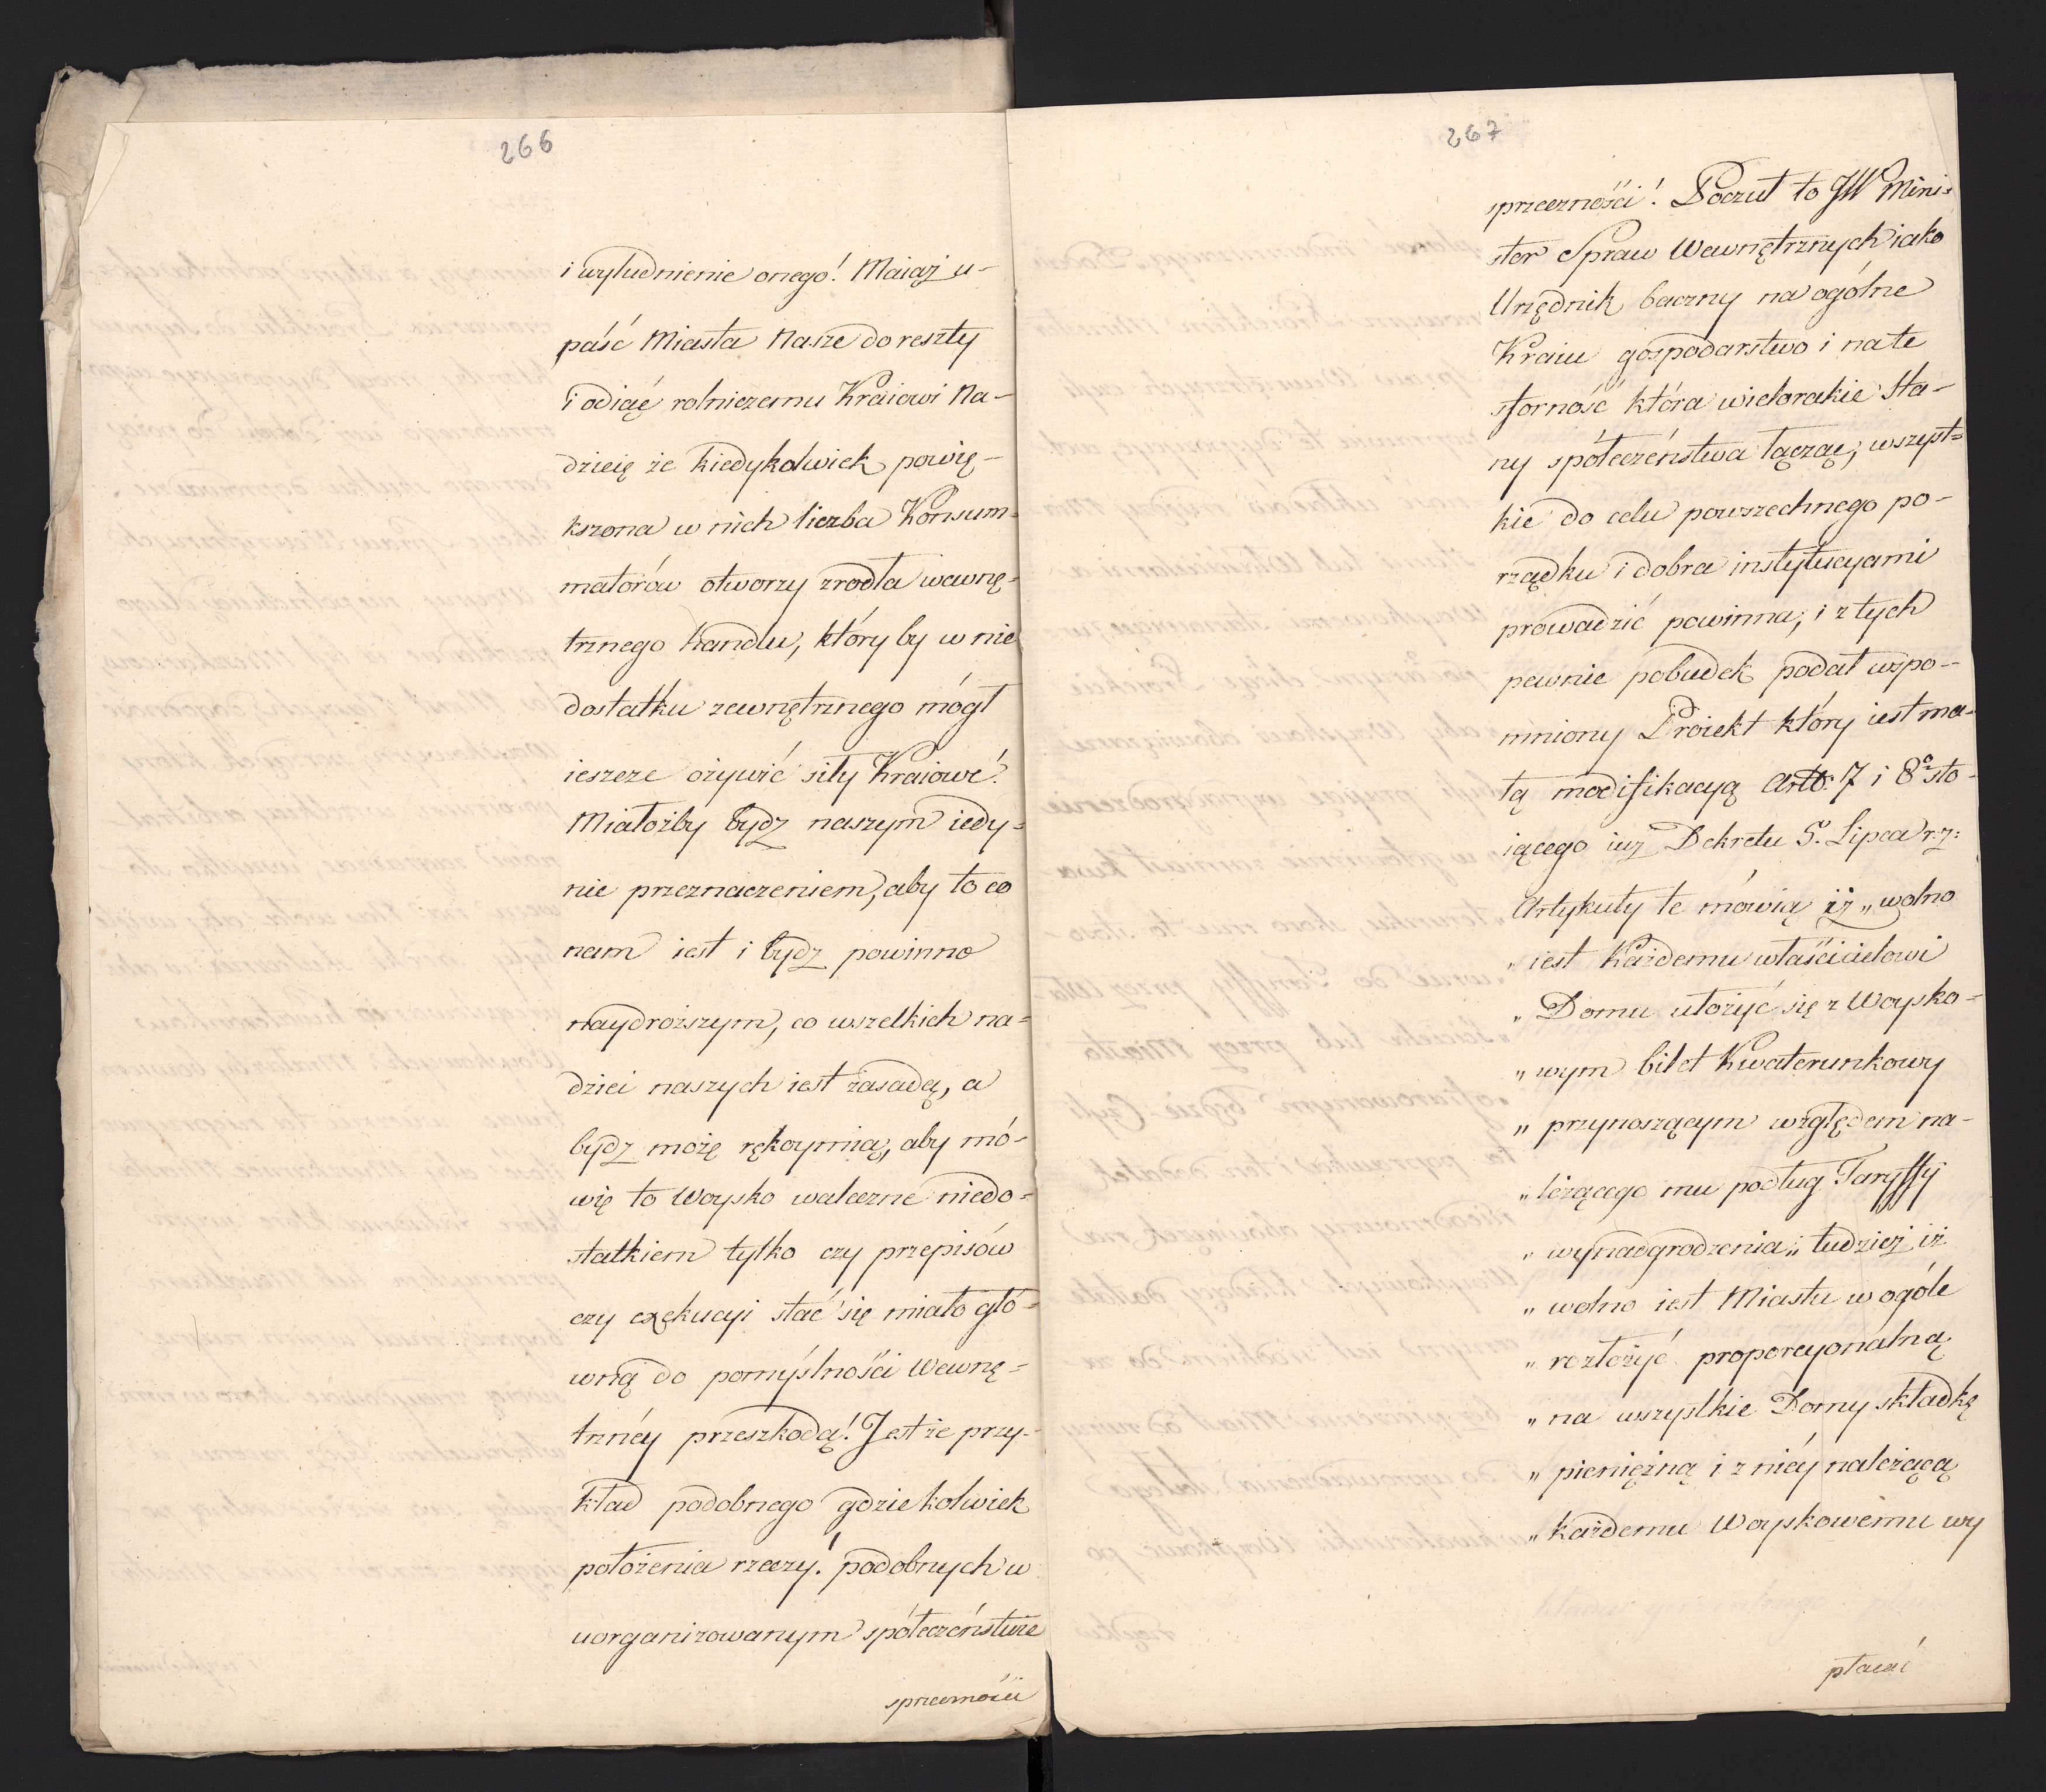 266
i wyludnienie onego! Maiąż u-
paść Miasta Nasze do reszty
i odiąć rolniczemu Kraiowi Na-
dzieię że kiedykolwiek powię-
kszona w nich liczba Konsum-
matorów otworzy zrodła wewnę-
trznego handlu, który by w nie
dostatku zewnętrznego mógł
ieszcze ożywić siły Kraiowe!
Miałożby bydz naszym iedy-
nie przeznaczeniem, aby to co
nam iest i bydz powinno
naydroższym, co wszelkich na-
dziei naszych iest zasadą, a
bydz może rękoymią, aby mó-
wię to Woysko waleczne niedo-
statkiem tylko czy przepisów
czy exekucyi stać się miało głó-
wną do pomyślności Wewnę-
trznéy przeszkodą! Jest że przy-
kład podobnego gdziekolwiek
położenia rzeczy! podobnych w
uorganizowanym społeczeństwie
sprzeczności
267
sprzeczności! Poczuł to JW Mini-
ster Spraw Wewnętrznych iako
Urzędnik baczny na ogólne
Kraiu gospodarstwo i na te
sforność która wielorakie Sta-
ny społeczeństwa łącząc, wszyst-
kie do celu powszechnego po-
rządku i dobra instytucyami
prowadzić powinna; i z tych
pewnie pobudek podał wspo-
mniony Proiekt który iest ma-
łą modifikacyą Artł: 7 i 8º sto-
iącego iuż Dekretu 5º Lipca r.z:
Artykuły te mówią iż „wolno
„ iest Każdemu właścicielowi
„ Domu ułożyć się z Woysko-
„ wym bilet Kwaterunkowy
„ przynoszącym względem na-
„ leżącego mu podług Taryffy
„ wynadgrodzenia„ tudzież iż
„ wolno iest Miastu w ogóle
„ rozłożyć proporcyonalną
„ na wszystkie Domy składkę
„ pieniężną i z niéy należącą
„ każdemu Woyskowemu wy
płacać